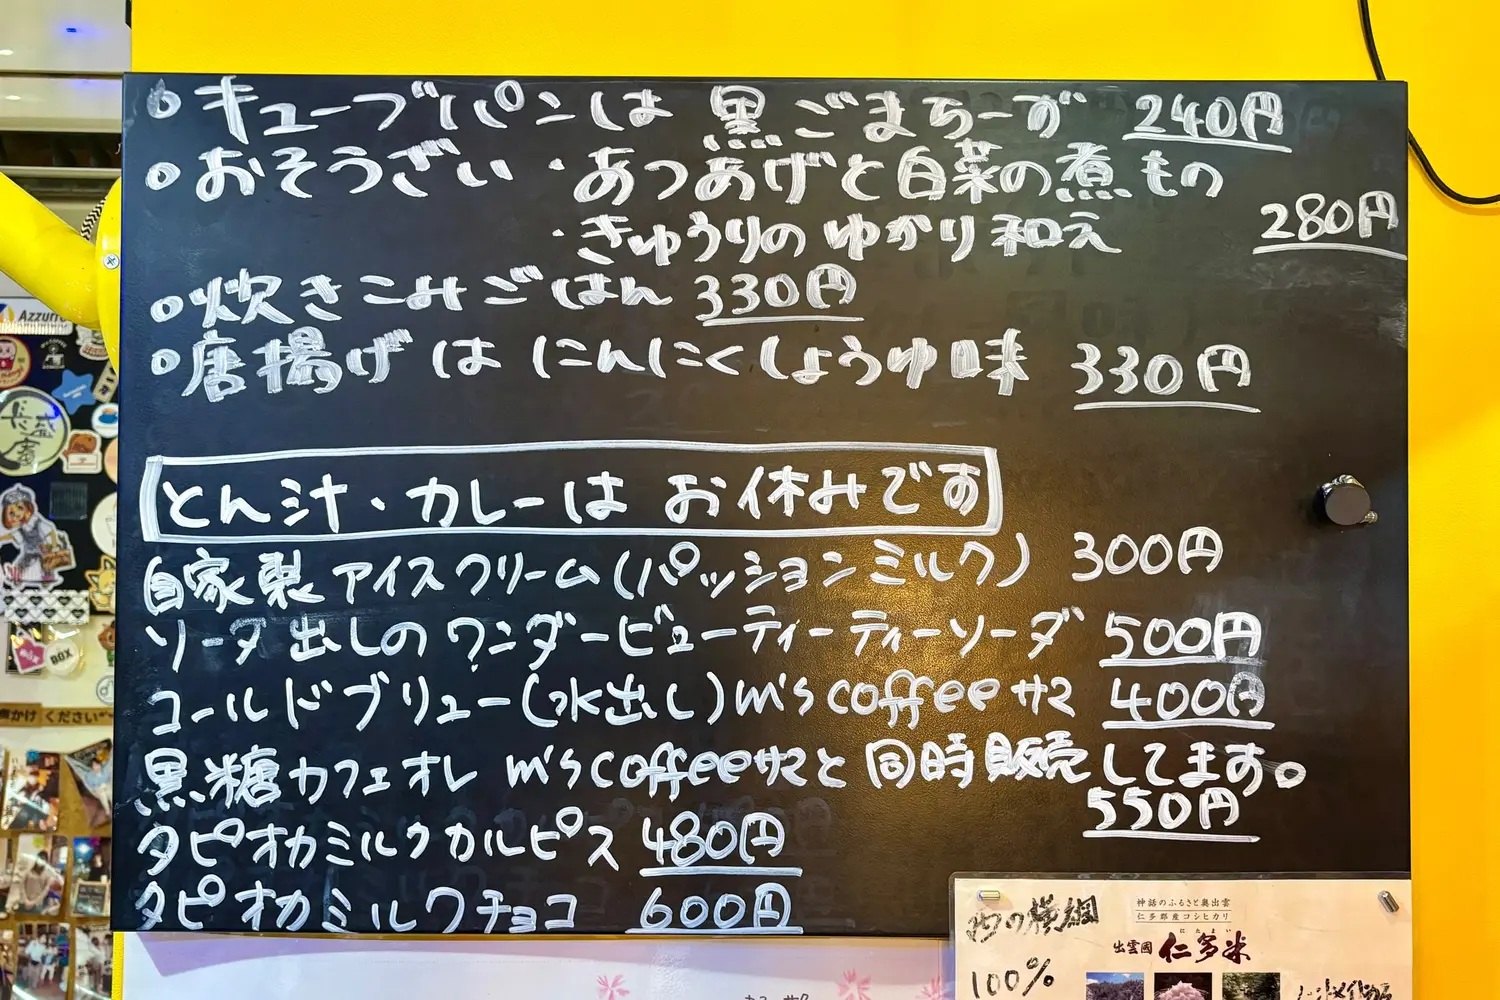 ○キューブパンは 黒ごまちーず 240円
○おそうざい ・あつあげと白菜の煮もの
・きゅうりのゆかり和え 280円
○炊きこみごはん 330円
○唐揚げは にんにくしょうゆ味 330円
とん汁・カレーは お休みです
自家製アイスクリーム(パッションミルク) 300円
ソーダ出しのワンダービューティーティーソーダ 500円
コールドブリュー(水出し)m's coffeeサマ 400円
黒糖カフェオレ m's coffeeサマと同時販売してます。
550円
タピオカミルクカルピス 480円
タピオカミルクチョコ 600円
Azzurro
BOX
ください
西の横綱
100%
神話のふるさと奥出雲
仁多郡産コシヒカリ
にたまい
出雲國 仁多米